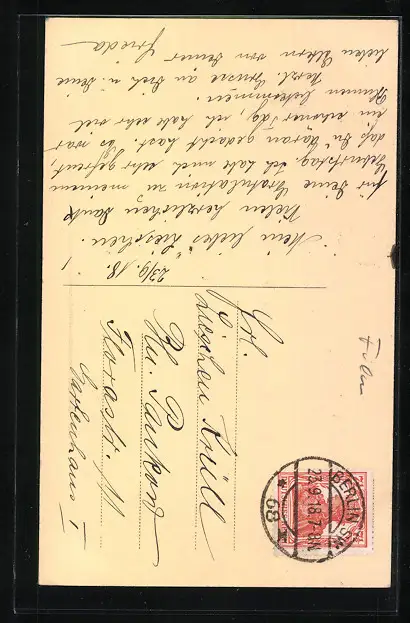 23/9.18.
Mein liebes Lieschen.
Vielen herzlichen Dank
für Deine Gratulation zu meinem
Geburtstag. Ich habe mich sehr gefreut,
daß Du daran gedacht hast. Es war
ein schöner Tag, ich habe sehr viel
Blumen bekommen.
Herzl. Grüsse an Dich u. Deine
lieben Eltern von Deiner Frieda
Frl.
Lieschen Krüll
Bln. Pankow
Florastr. 11
Gartenhaus I
BERLIN SW
23.9.18.7-8N
* 68 *